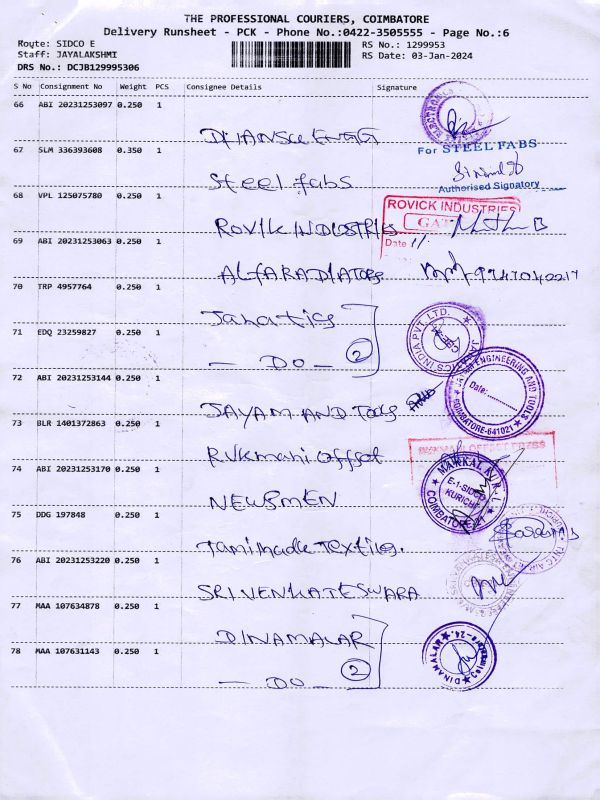 THE PROFESSIONAL COURIERS, COIMBATORE
Delivery Runsheet - PCK - Phone No.:0422-3505555 - Page No.:6
Route: SIDCO E
RS No.: 1299953
Staff: JAYALAKSHMI
RS Date: 03-Jan-2024
DRS No.: DCJB129995306
S No Consignment No Weight PCS Consignee Details Signature
66 ABI 20231253097 0.250 1
ELECTRONICS
67 SLM 336393608 0.350 1
For STEEL FABS
Steel fabs
Authorised Signatory
68 VPL 125075780 0.250 1
ROVICK INDUSTRIES
ROVICK INDUSTRIES
Date
69 ABI 20231253063 0.250 1
ALFARADIATORS
70 TRP 4957764 0.250 1
Janatics
JANATICS INDIA PVT. LTD.
CBE-21
71 EDQ 23259827 0.250 1
— DO — 2
72 ABI 20231253144 0.250 1
JAYAM AND Tools
ENGINEERING AND TOOLS
Date:
COIMBATORE-641021
73 BLR 1401372863 0.250 1
Rukmani offset
OFFSET PRESS
74 ABI 20231253170 0.250 1
NEWSMEN
E-1-SIDCO
KURICHI
COIMBATORE-21
75 DDG 197848 0.250 1
Tamilnadu Textiles.
76 ABI 20231253220 0.250 1
SRI VENKATESWARA
77 MAA 107634878 0.250 1
DINAMALAR
78 MAA 107631143 0.250 1
— DO — 2
DINAMALAR
Coimbatore-24